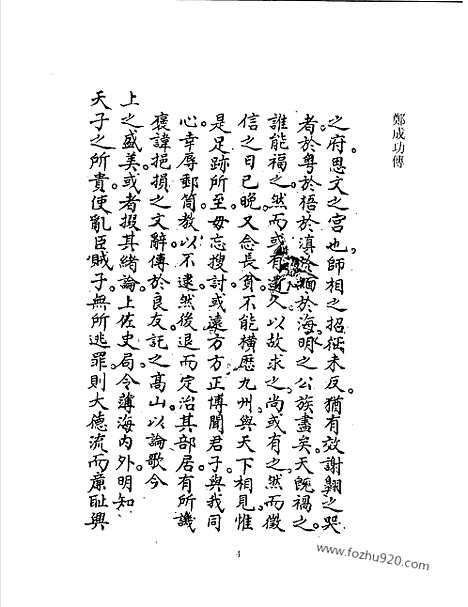 鄭成功傳
之府思文之宮也師相之招征未反猶有效謝翱之哭
者於粵於梧於滇於緬於海明之公族盡矣天既禍之
誰能福之然而或有久以故求之尚或有之然而徵
信之日已晚又念長貧不能橫歷九州與天下相見惟
是足跡所至毋忘搜討或遠方方正博聞君子與我同
心幸辱郵简教以不逮然後退而定治其部居有所譏
褒諱挹損之文辭傳於良友託之高山以論歌今
上之盛美或者掇其緒論上佐史局令薄海內外明知
天子之所貴使亂臣賊子無所逃罪則大德流而廉恥興
4
www.fozhu920.com